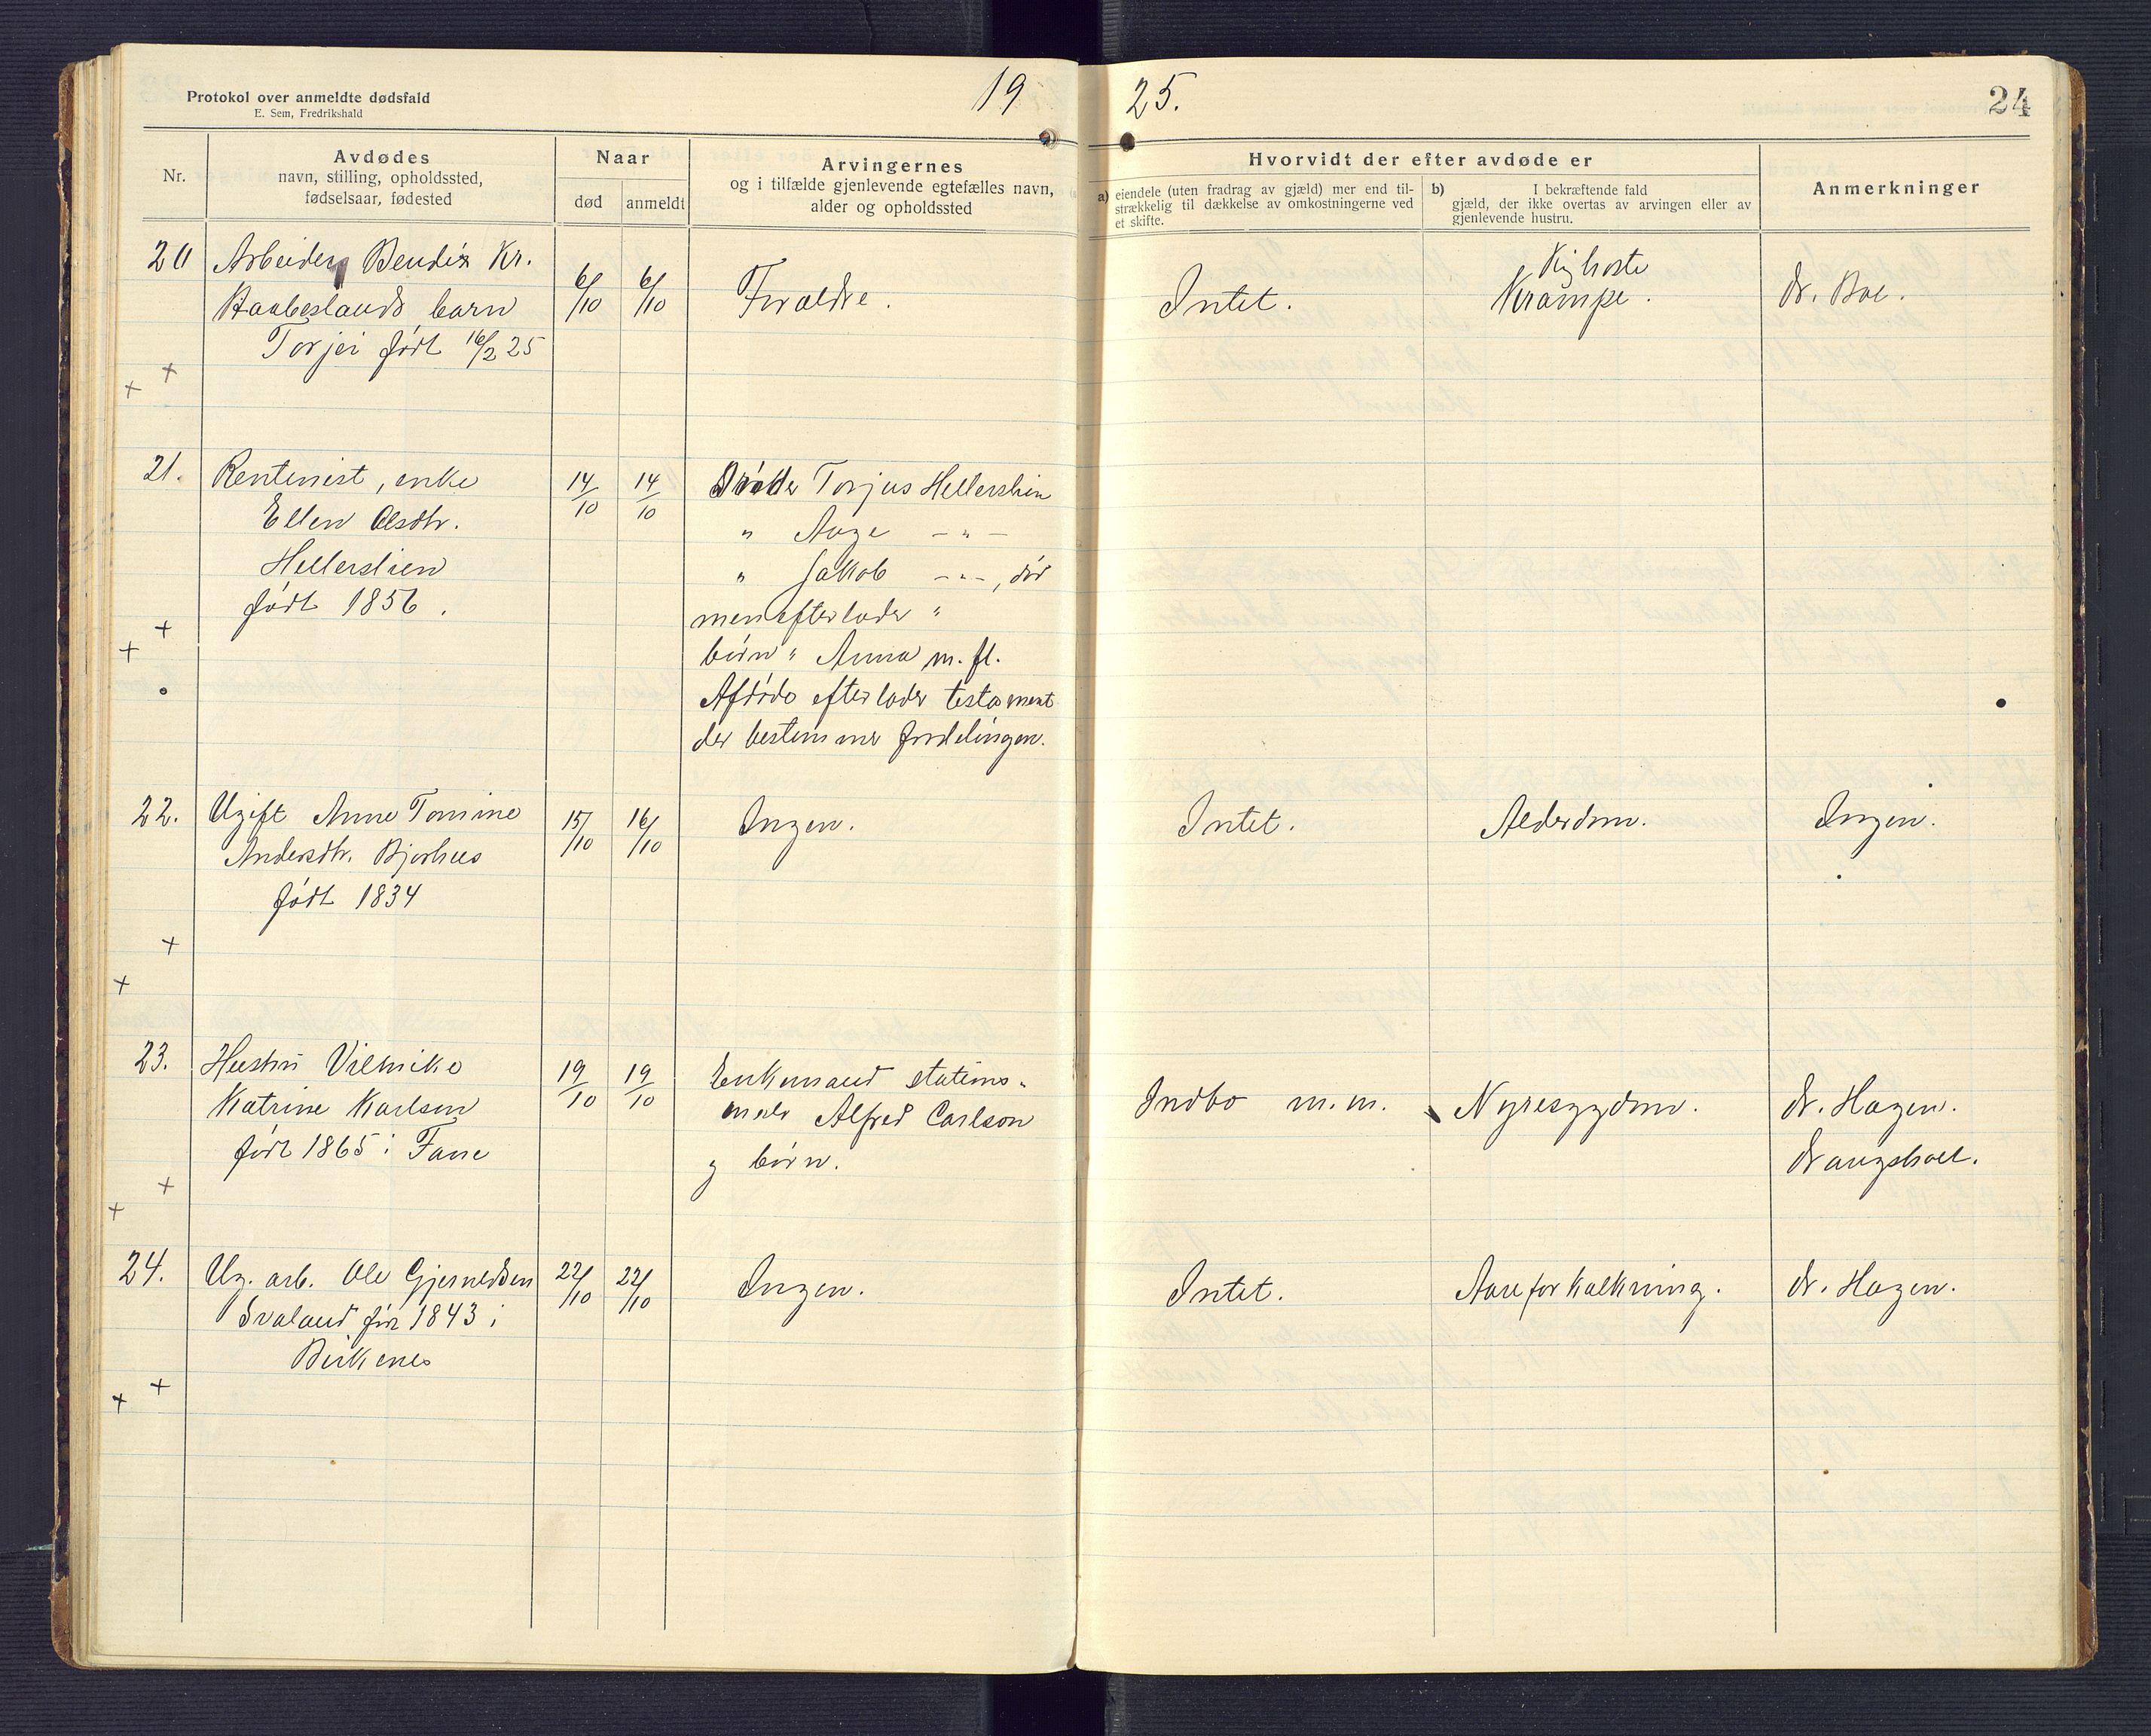 Protokol over anmeldte dødsfald
E. Sem, Fredrikshald
19 25.
24
Nr.
Avdødes
navn, stilling, opholdssted,
fødselsaar, fødested
Naar
død
anmeldt
Arvingernes
og i tilfælde gjenlevende egtefælles navn,
alder og opholdssted
Hvorvidt der efter avdøde er
a) eiendele (uten fradrag av gjæld) mer end til-
strækkelig til dækkelse av omkostningerne ved
et skifte.
b) I bekræftende fald
gjæld, der ikke overtas av arvingen eller av
gjenlevende hustru.
Anmerkninger
20 Arbeider Bendix Kr.
Haabeslands barn
Torjei født 16/2 25
6/10 6/10
Forældre.
Intet.
Kighoste
Krampe.
dr. Boe.
21. Rentenist, enke
Ellen Olsdtr.
Hellerslien
født 1856.
14/10 14/10
Broder Torjus Hellerslien
" Aage - " -
" Jakob - " -, død
men efterlader "
børn " Anna m. fl.
Afdøde efterlader testament
der bestemmer fordelingen.
22. Ugift Anne Tomine
Andersdtr. Bjorhus
født 1834
15/10 16/10
Ingen.
Intet.
Alderdom.
Ingen.
23. Hustru Vilmike
Katrine Karlsen
født 1865 i Fane
19/10 19/10
Enkemand stations-
mest Alfred Carlson
og børn.
Indbo m.m.
Nyresygdom.
dr. Hagen.
Drangsholt.
24. Ug. arb. Ole Gjeruldsen
Svaland før 1843 i
Birkenes
22/10 22/10
Ingen.
Intet.
Aareforkalkning.
dr. Hagen.